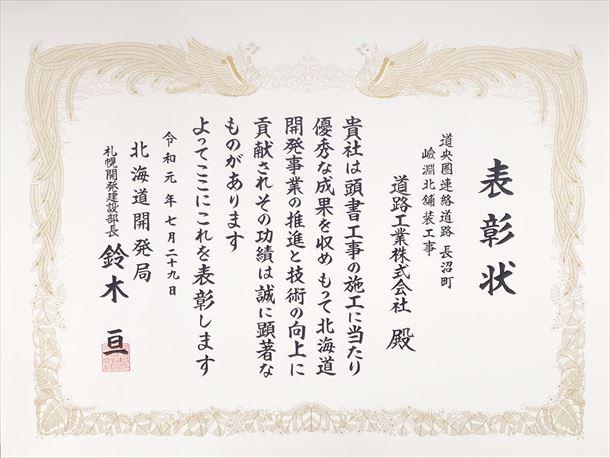 表彰状
道央圏連絡道路 長沼町
嶮淵北舗装工事
道路工業株式会社 殿
貴社は頭書工事の施工に当たり
優秀な成果を収め もって北海道
開発事業の推進と技術の向上に
貢献されその功績は誠に顕著な
ものがあります
よってここにこれを表彰します
令和元年七月二十九日
北海道開発局
札幌開発建設部長 鈴木 亘